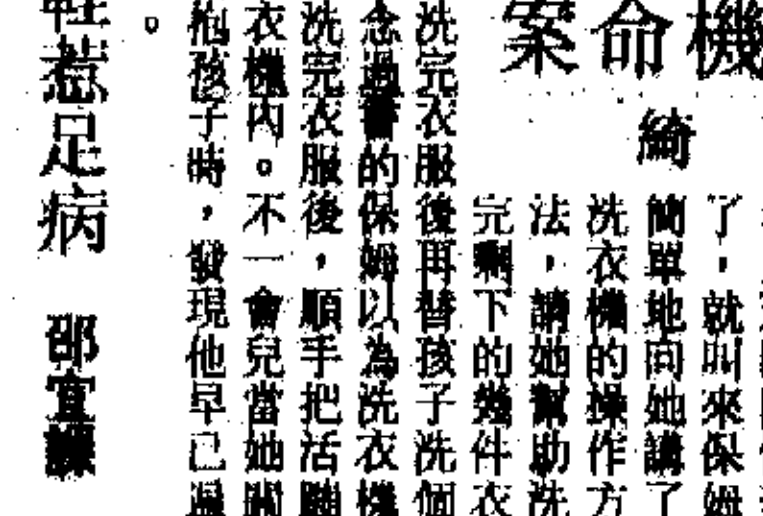 機命案
綺
了，就叫來保姆
簡單地向她講了
洗衣機的操作方
法，請她幫助洗
完剩下的幾件衣
洗完衣服後再替孩子洗個
念過書的保姆以為洗衣機
洗完衣服後，順手把活蹦
衣機內。不一會兒當她
抱孩子時，發現他早已
。
鞋惹足病
邵宜